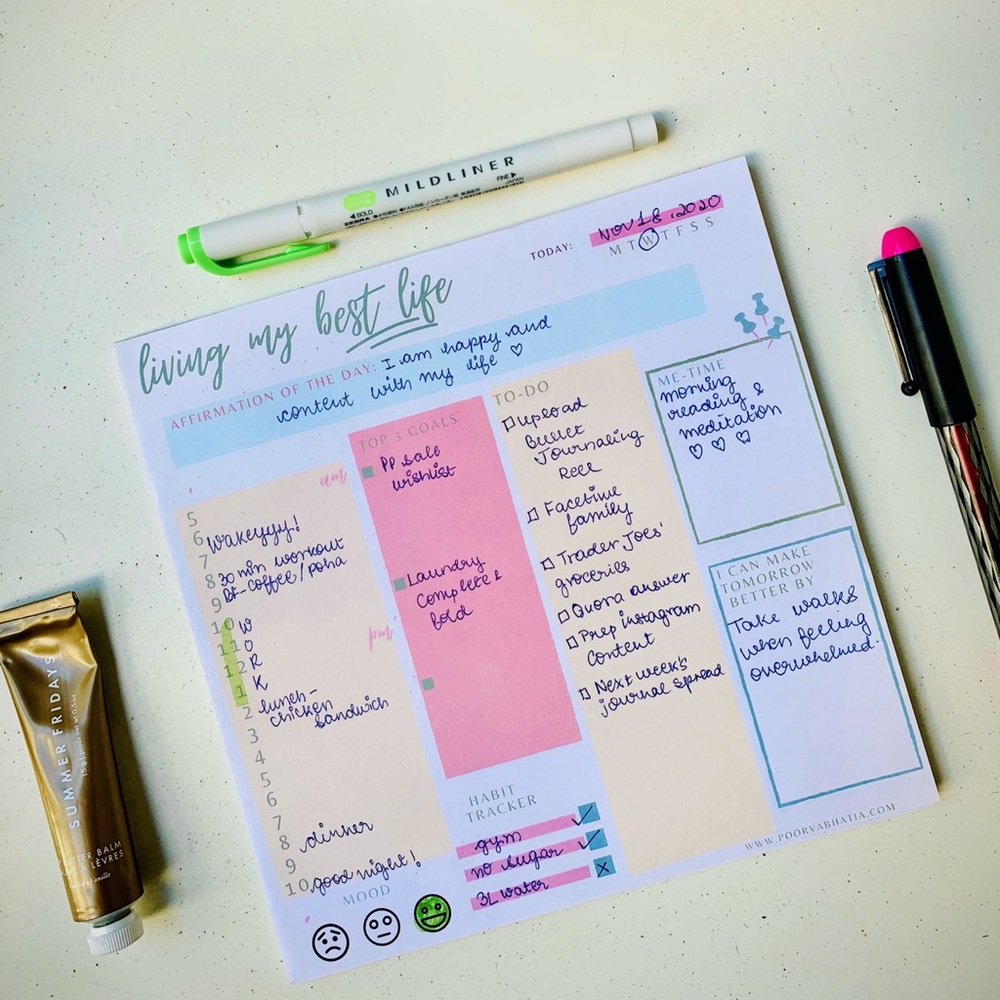 MILDLINER
◀BOLD
FINE▶
ZEBRA
JAPAN
TODAY: NOV 18, 2020
M T W T F S S
living my best life
AFFIRMATION OF THE DAY: I am happy and
content with my life ♡
am
5
6 Wakeyyy!
7
8 30 min workout
BF-coffee/poha
9
10 W
11 O
pm
12 R
1 K
2 lunch-
chicken
sandwich
3
4
5
6
7
8 dinner
9
10 good night!
TOP 3 GOALS
PP sale
wishlist
Laundry
Complete &
fold
TO-DO
Upload
Bullet
Journaling
Reel
Facetime
family
Trader Joes'
groceries
Quora answer
Prep instagram
Content
Next week's
journal spread
ME-TIME
morning
reading &
meditation
♡ ♡ ♡
I CAN MAKE
TOMORROW
BETTER BY
Take walks
when feeling
overwhelmed.
HABIT
TRACKER
gym
no sugar
3L water
MOOD
WWW.POORVABHATIA.COM
SUMMER FRIDAYS
15 g / poids net 0.5 oz
BALM
LÈVRES